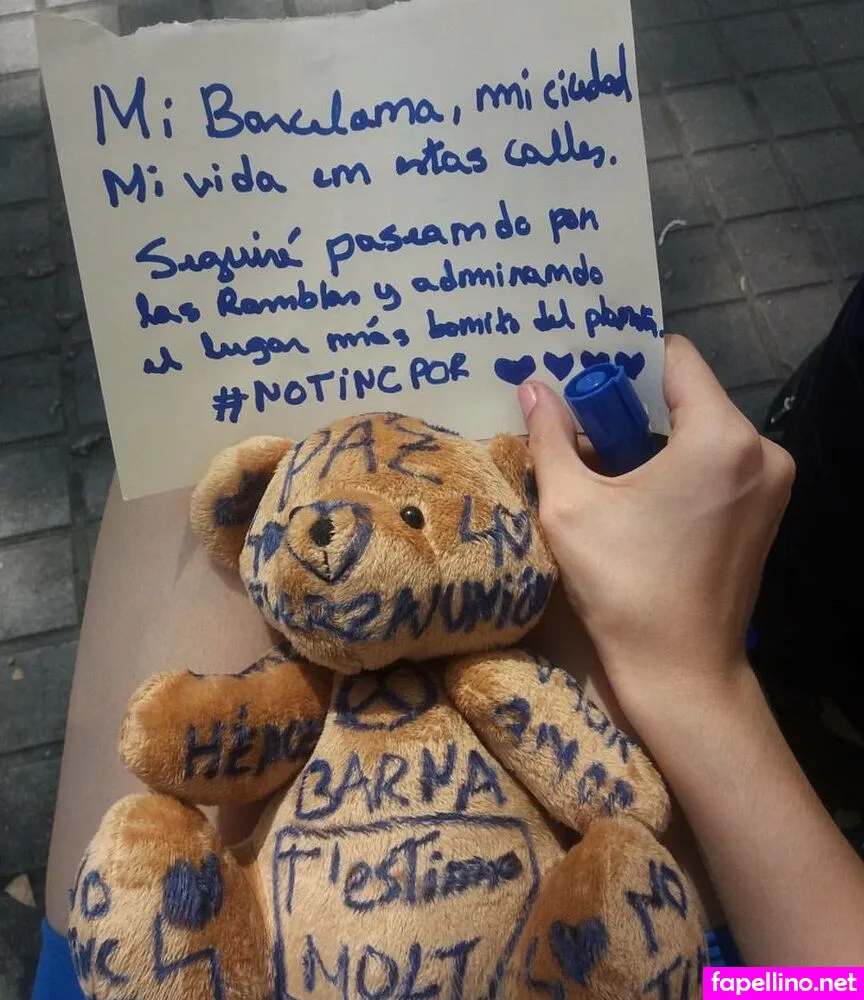 Mi Barcelona, mi ciudad
Mi vida en estas calles.
Seguiré paseando por
las Ramblas y admirando
el lugar más bonito del planeta.
#NOTINCPOR ♥♥♥♥
PAZ
FUERZA
UNIÓN
BARNA
T'estimo
MOLT
AMOR
NO
TINC
NO
fapellino.net